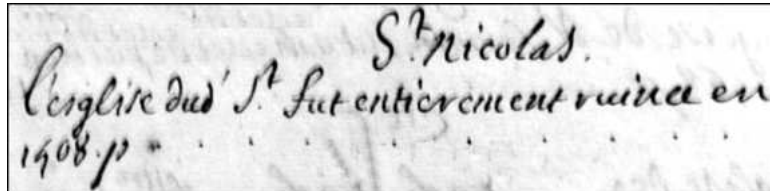 St. Nicolas.
L'esglise dud' St. fut entierement ruinee en
1508. p " . . . . . . . . .